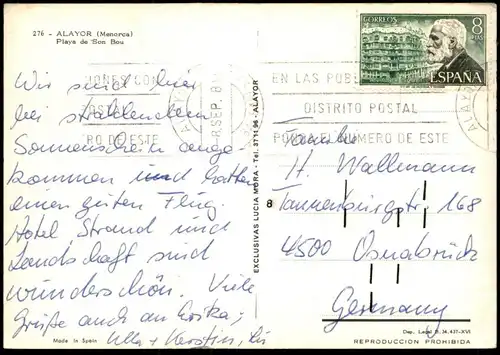 276 - ALAYOR (Menorca)
Playa de Son Bou
CORREOS
8
PTAS
ESPAÑA
IONES CON
EN LAS PUB
DISTRITO POSTAL
RO DE ESTE
PONGA EL NUMERO DE ESTE
SEP. 8
ALAYOR
Wir sind hier
bei strahlendem
Sonnenschein ange-
kommen und hatten
einen guten Flug.
Hotel, Strand und
Landschaft sind
wunderschön. Viele
Grüße auch an Erika;
Ulla + Kerstin,
EXCLUSIVAS LUCIA MORA - Tel. 37 11 96 - ALAYOR
8
Familie
H. Wallmann
Tannenburgstr. 168
4500 Osnabrück
Germany
Made in Spain
Dep. Legal B. 34.437-XVI
REPRODUCCION PROHIBIDA